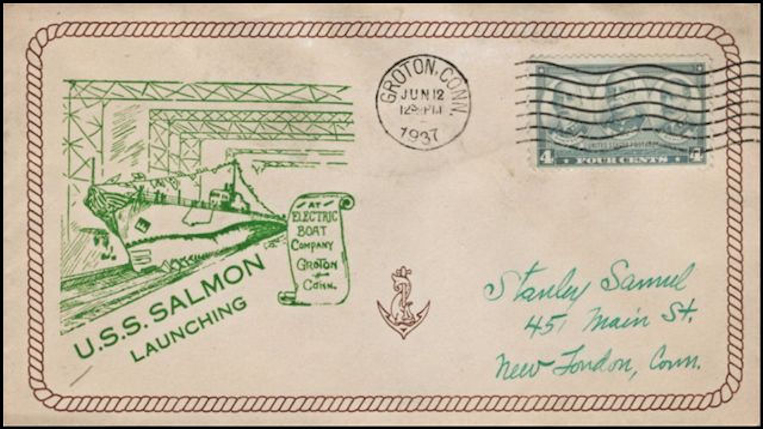 GROTON, CONN.
JUN 12
1937
UNITED STATES POSTAGE
4 FOUR CENTS 4
AT
ELECTRIC
BOAT
COMPANY
GROTON
CONN.
U.S.S. SALMON
LAUNCHING
Stanley Samul
451 Main St.
New London, Conn.